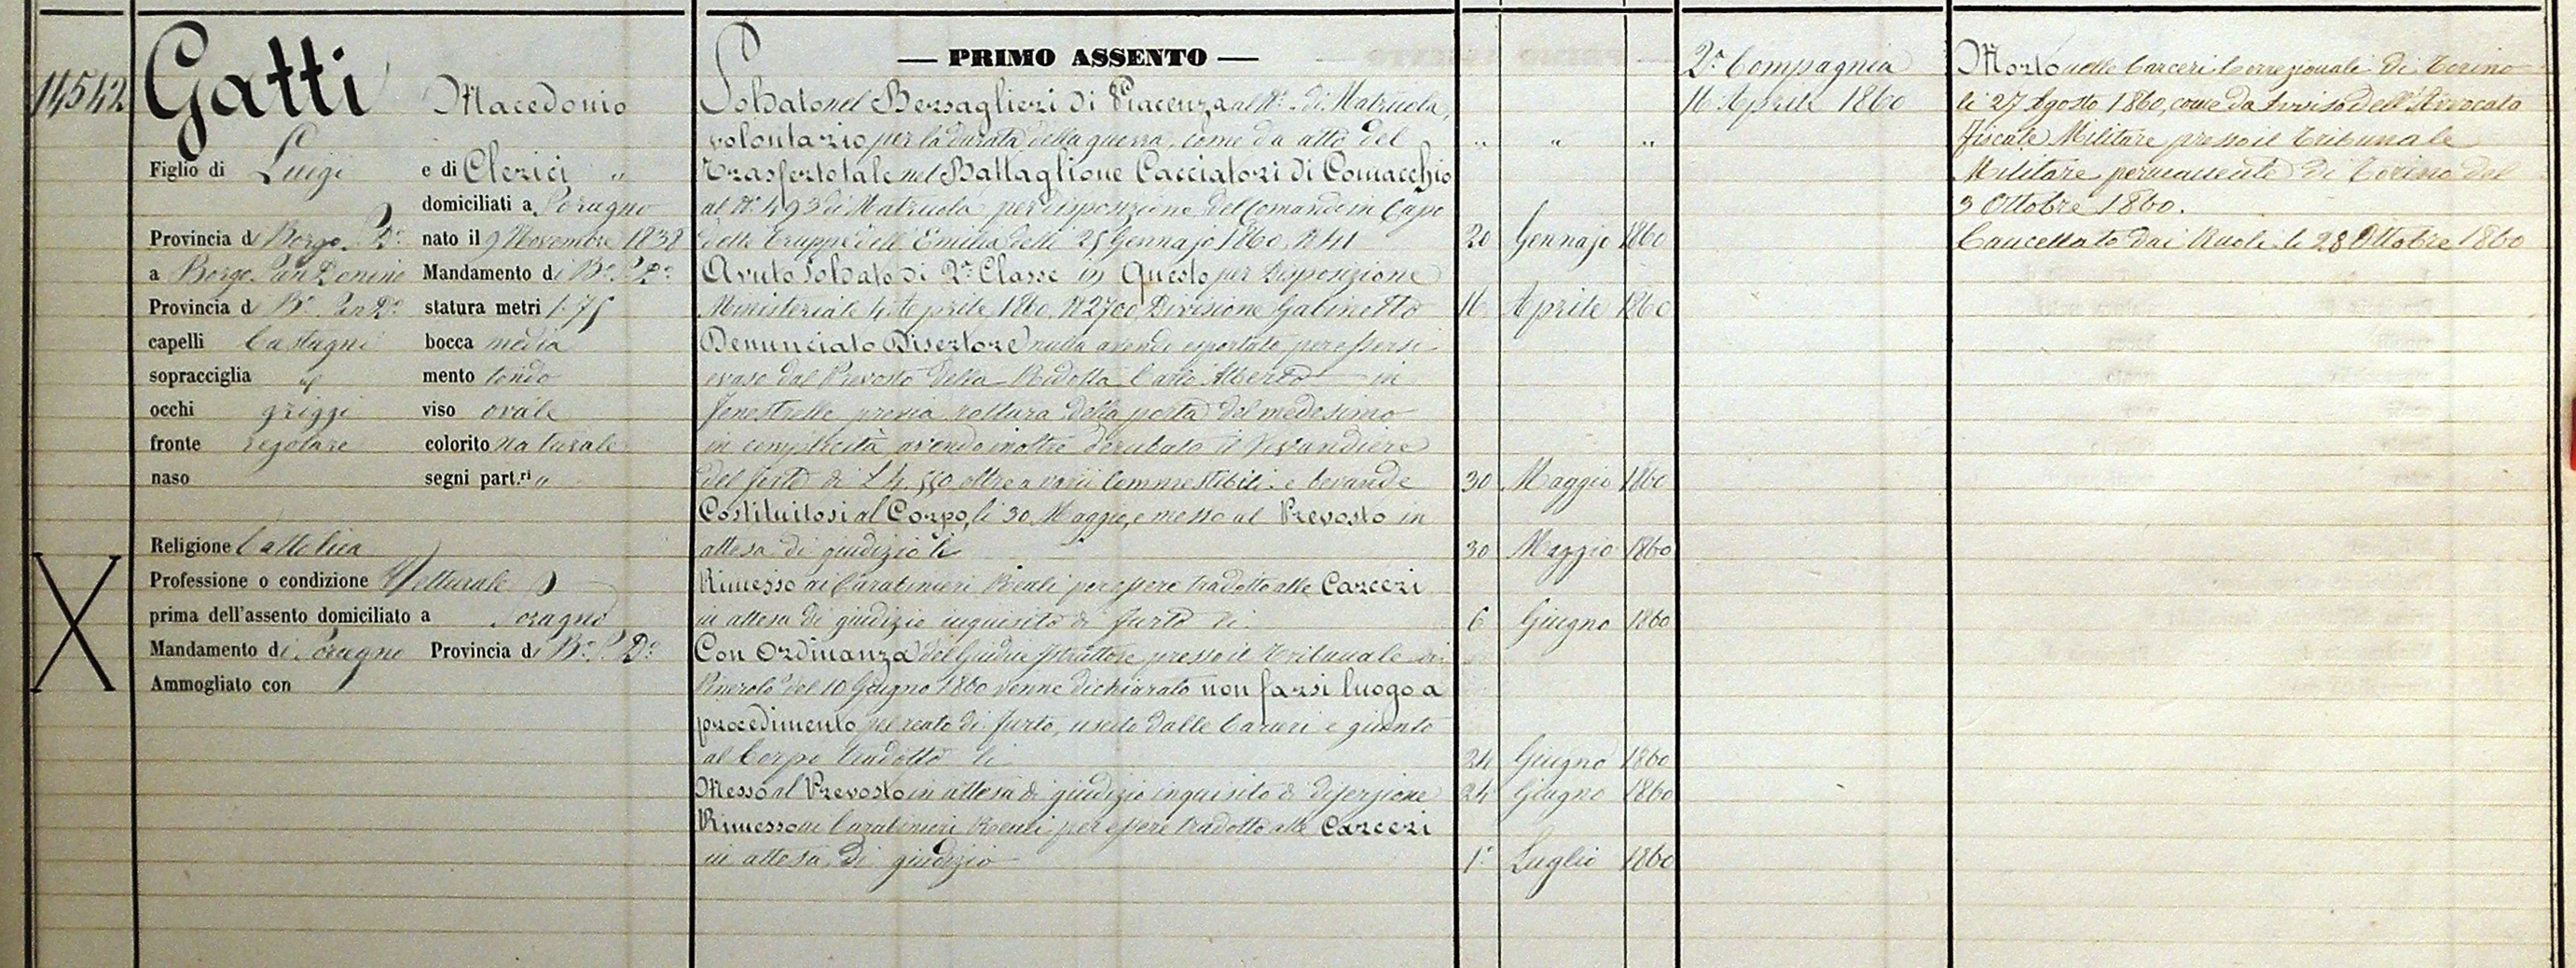 14542
Gatti Macedonio
Figlio di Luigi e di Clerici "
domiciliati a Soragno
Provincia di Borgo S. Do. nato il 9 Novembre 1838
a Borgo San Donino Mandamento di Bo. S. Do.
Provincia di Bo. San Do. statura metri 1.75
capelli Castagni bocca media
sopracciglia id mento tondo
occhi griggi viso ovale
fronte regolare colorito naturale
naso segni part.ri "
Religione Cattolica
Professione o condizione Vetturale
prima dell'assento domiciliato a Soragno
Mandamento di Soragno Provincia di Bo. S. Do.
Ammogliato con
X
— PRIMO ASSENTO —
Soldato nel Bersaglieri di Piacenza al No. " di Matricola,
volontario per la durata della guerra, come da atto del " " "
Trasferto tale nel Battaglione Cacciatori di Comacchio
al No. 493 di Matricola per disposizione del Comando in Capo
delle Truppe dell'Emilia delli 25 Gennajo 1860 N 41 20 Gennajo 1860
Avuto Soldato di 2a Classe in Questo per Disposizione
Ministeriale 4 Aprile 1860 N 2700 Divisione Gabinetto 16 Aprile 1860
Denunciato Disertore nulla avendo esportato per essersi
evaso dal Prevosto della Ridotta Carlo Alberto in
Fenestrelle previa rottura della porta del medesimo
in complicità avendo inoltre derubato il Vivandiere
del forte di L 4,550 oltre a varii Commestibili e bevande 30 Maggio 1860
Costituitosi al Corpo, li 30 Maggio, e messo al Prevosto in
attesa di giudizio li 30 Maggio 1860
Rimesso ai Carabinieri Reali per essere tradotto alle Carceri
in attesa di giudizio inquisito di furto li 6 Giugno 1860
Con Ordinanza del Giudice Istruttore presso il Tribunale di
Pinerolo del 10 Giugno 1860 venne dichiarato non farsi luogo a
procedimento pel reato di furto, uscito dalle Carceri e giunto
al Corpo tradotto li 24 Giugno 1860
Messo al Prevosto in attesa di giudizio inquisito di diserzione 24 Giugno 1860
Rimesso ai Carabinieri Reali per essere tradotto alle Carceri
in attesa di giudizio 1° Luglio 1860
2a Compagnia
16 Aprile 1860
Morto nelle Carceri Correzionali di Torino
li 27 Agosto 1860, come da Avviso dell'Avvocato
Fiscale Militare presso il Tribunale
Militare permanente di Torino del
3 Ottobre 1860.
Cancellato dai Ruoli li 28 Ottobre 1860